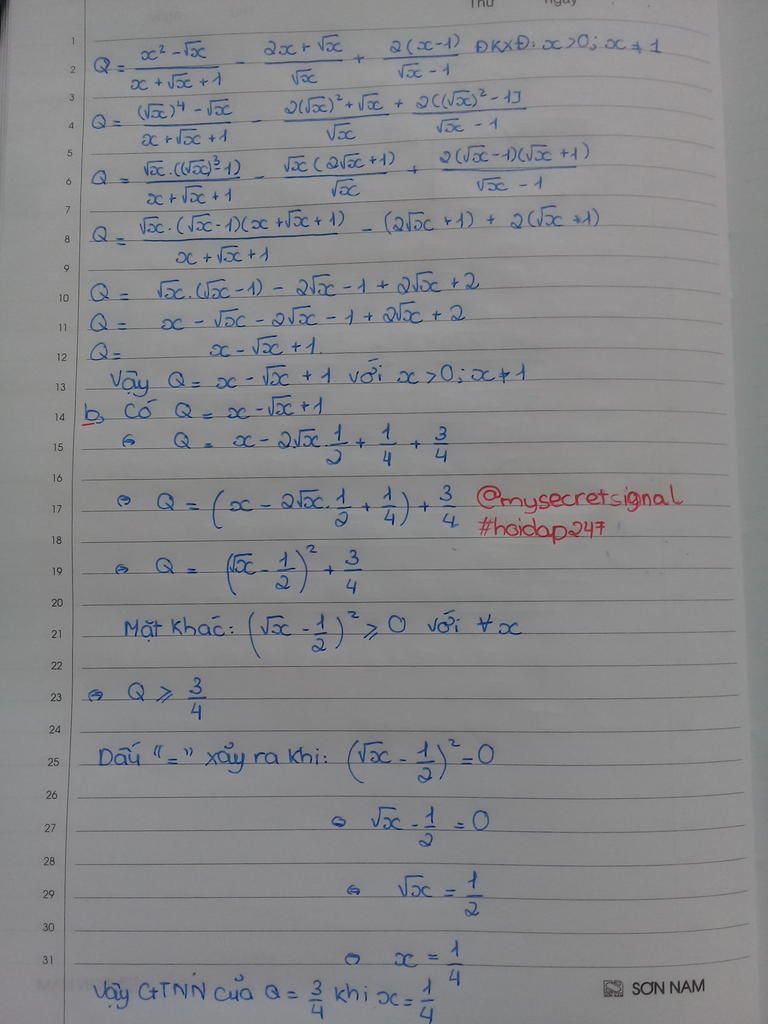 Thứ ngày
1
2 Q = \frac{x^2 - \sqrt{x}}{x + \sqrt{x} + 1} - \frac{2x + \sqrt{x}}{\sqrt{x}} + \frac{2(x - 1)}{\sqrt{x} - 1} ĐKXĐ: x > 0; x ≠ 1
3
4 Q = \frac{(\sqrt{x})^4 - \sqrt{x}}{x + \sqrt{x} + 1} - \frac{2(\sqrt{x})^2 + \sqrt{x}}{\sqrt{x}} + \frac{2((\sqrt{x})^2 - 1]}{\sqrt{x} - 1}
5
6 Q = \frac{\sqrt{x}.((\sqrt{x})^3 - 1)}{x + \sqrt{x} + 1} - \frac{\sqrt{x}(2\sqrt{x} + 1)}{\sqrt{x}} + \frac{2(\sqrt{x} - 1)(\sqrt{x} + 1)}{\sqrt{x} - 1}
7
8 Q = \frac{\sqrt{x}.(\sqrt{x} - 1)(x + \sqrt{x} + 1)}{x + \sqrt{x} + 1} - (2\sqrt{x} + 1) + 2(\sqrt{x} + 1)
9
10 Q = \sqrt{x}.(\sqrt{x} - 1) - 2\sqrt{x} - 1 + 2\sqrt{x} + 2
11 Q = x - \sqrt{x} - 2\sqrt{x} - 1 + 2\sqrt{x} + 2
12 Q = x - \sqrt{x} + 1.
13 Vậy Q = x - \sqrt{x} + 1 với x > 0; x ≠ 1
14 b, Có Q = x - \sqrt{x} + 1
15 ⇔ Q = x - 2\sqrt{x}.\frac{1}{2} + \frac{1}{4} + \frac{3}{4}
16
17 ⇔ Q = (x - 2\sqrt{x}.\frac{1}{2} + \frac{1}{4}) + \frac{3}{4} @mysecretsignal
#hoidap247
18
19 ⇔ Q = (\sqrt{x} - \frac{1}{2})^2 + \frac{3}{4}
20
21 Mặt khác: (\sqrt{x} - \frac{1}{2})^2 ≥ 0 với ∀x
22
23 ⇔ Q ≥ \frac{3}{4}
24
25 Dấu "=" xảy ra khi: (\sqrt{x} - \frac{1}{2})^2 = 0
26
27 ⇔ \sqrt{x} - \frac{1}{2} = 0
28
29 ⇔ \sqrt{x} = \frac{1}{2}
30
31 ⇔ x = \frac{1}{4}
Vậy GTNN của Q = \frac{3}{4} khi x = \frac{1}{4}
SƠN NAM